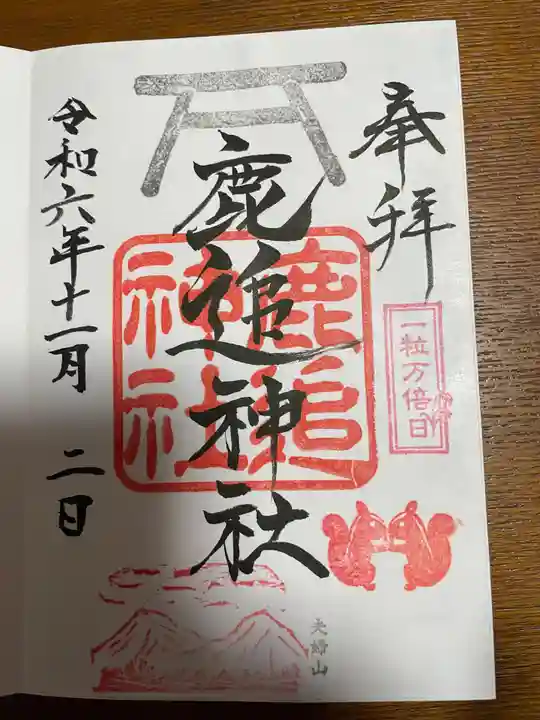 奉拝
一粒万倍日
鹿追神社
鹿追
神社
夫婦山
令和六年十一月 二日